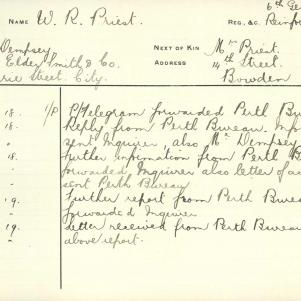 6th Ge
NAME W. R. Priest. REG. &C. Reinfo
Dempsey NEXT OF KIN Mr Priest.
Elder Smith & Co. ADDRESS 14th Street.
rie Street. City. Bowden
18. 1/P P/Telegram forwarded Perth Bu
18. Reply from Perth Bureau.
sent Inquirer, also Mr Dempsey
18. Further information from Perth B
" forwarded Inquirer also letter of
sent Perth Bureau
19. Further report from Perth Bure
" forwarded Inquirer
19. Letter received from Perth Bureau
" above report.